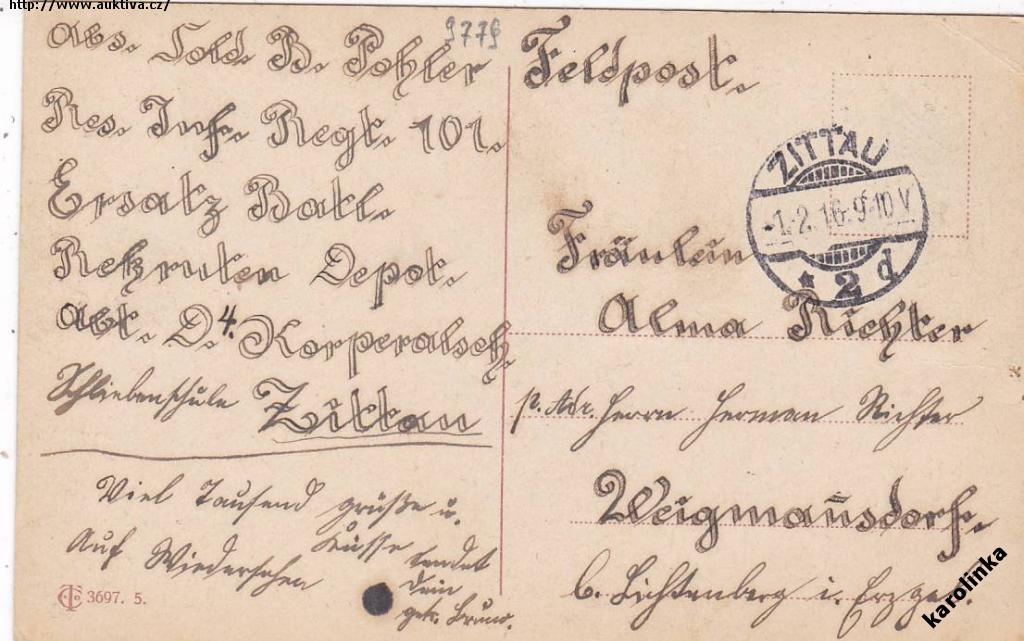 http://www.auktiva.cz/
9779
Abs. Sold. B. Pohler
Res. Inf. Regt. 101.
Ersatz Batl.
Rekruten Depot.
Abt. D. 4. Korperalsch.
Schliebenschule Zittau
Viel Tausend grüße u.
Küsse
Auf Wiedersehen
sendet
Dein
getr. Bruno.
3697. 5.
Feldpost.
ZITTAU
-1.2.16.9-10V
* 2 d
Fräulein
Alma Richter
p. Adr. Herrn Herman Richter
Weigmansdorf.
b. Lichtenberg i. Erzgeb.
karolinka